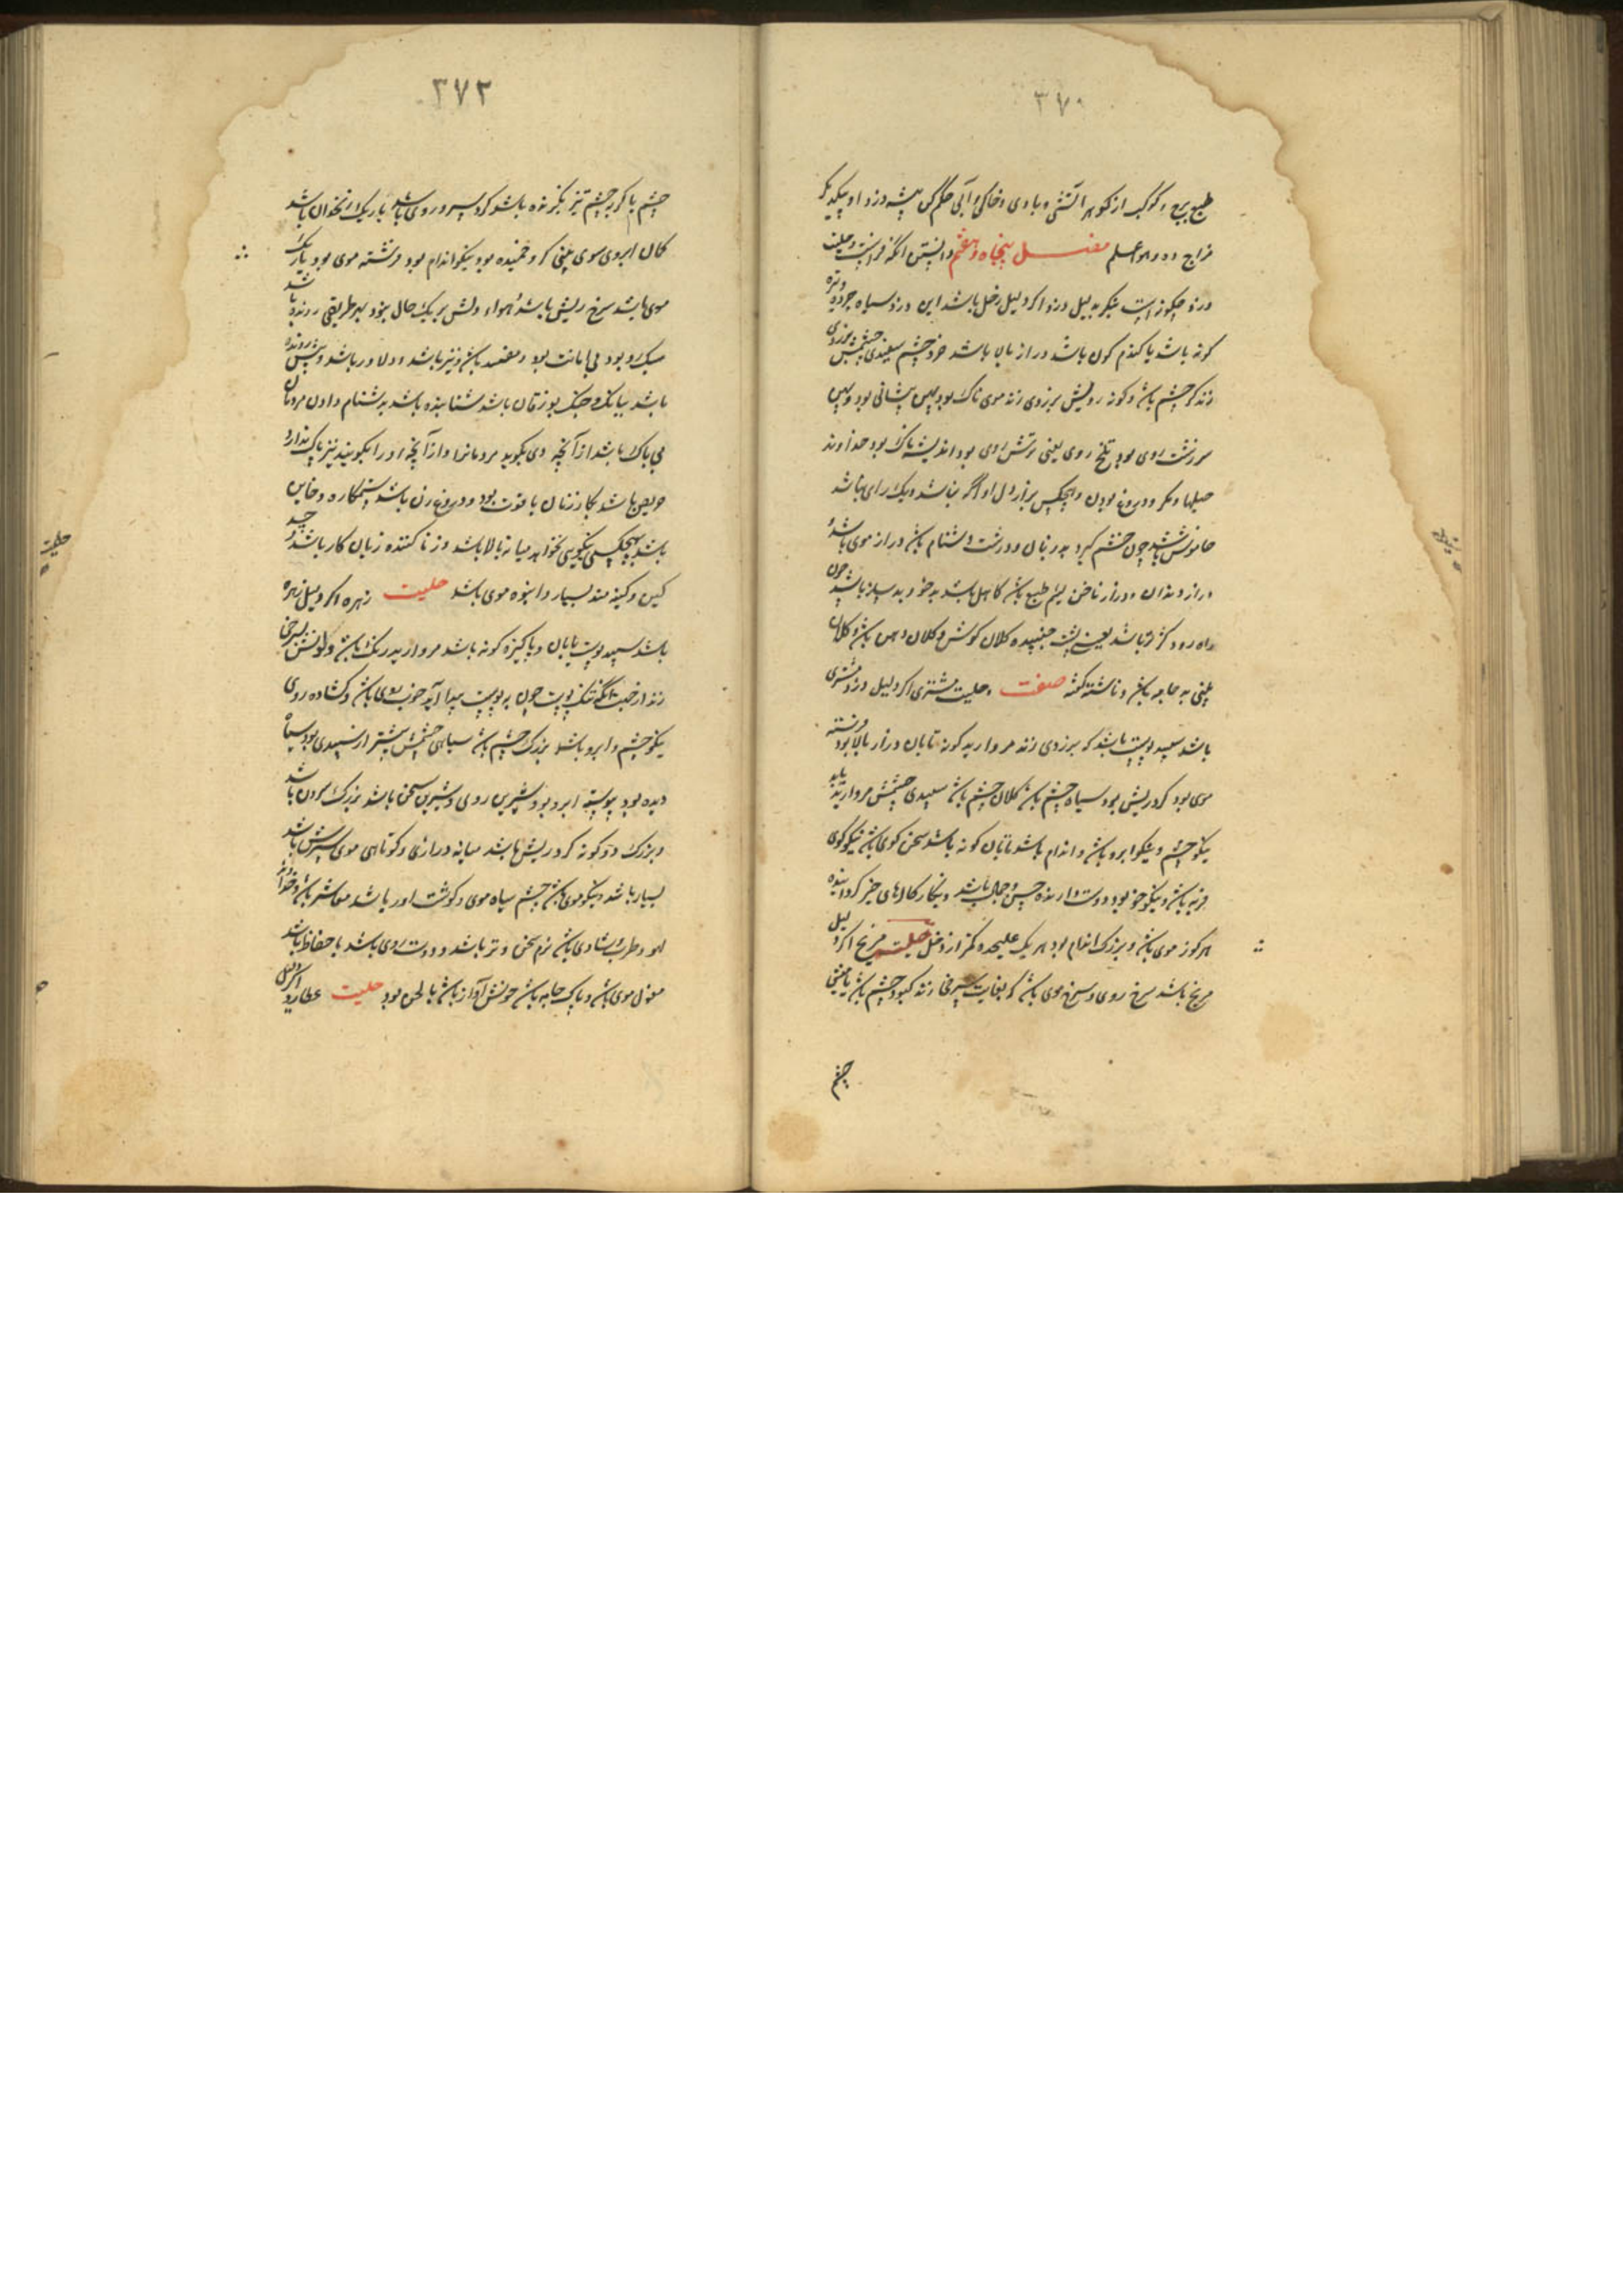 ٣٧٠
طبع برج و کوکب از کوهر آتشی و بادی و خاکی و آبی حکم کن پیشه دزد او پیکدیگر
مزاج ده و هو اعلم فصل پنجاه و هفتم دانستن انکه فراست و حلیت
دزد چکونه است بنکر بدلیل دزد اکر دلیل زحل باشد این دزد سیاه چرده و تیره
کونه باشد یا کندم کون باشد دراز بالا باشد خرد چشم سپیدی چشمش بزردی
زند کر چشم باشد و کونه رویش بزردی زند موی ناک بود پهن پیشانی بود و پهن
سر زشت روی بود تلخ روی یعنی ترش روی بود اندیشه ناک بود خداوند
حیلها و مکر و دروغ بودن و هیچکس بر راز دل او آکه نباشد و یک رای نباشد
خاموش باشد چون خشم کیرد بد زبان و درشت دشنام باشد دراز موی باشد و
دراز دندان و دراز ناخن لئیم طبع باشد کاهل باشد بد خو و بد ساز باشد چون
راه رود کژ رو باشد یعنی پشت خمیده کلان کوش و کلان دهن باشد و کلان
بینی به جامه باشد و ناشسته کشه صفت و حلیت مشتری اکر دلیل دزد مشتری
باشد سپید پوست باشد که بزردی زند مروارید کونه تابان دراز بالا بود فرشته
موی بود کرد ریش بود سیاه چشم باشد کلان چشم باشد سپیدی چشمش مروارید تابد
نیکو چشم و نیکو ابرو باشد و اندام باشد تابان کونه باشد سخن کوی باشد نیکو کوی
فربه باشد و نیکو خو بود دوست دارنده حسن و جمال باشد و نیکار کالهای خیر کرداننده
هر کونه موی باشد و بزرک اندام بود هر یک علیحده مکر از زحل حلیت مریخ اکر دلیل
مریخ باشد سرخ روی و سرخ موی باشد که بغایت بسرخی زند کبود چشم باشد یا میشی
چشم
٣٧٢
چشم یا کربه چشم تیز نکرنده باشد کرد سر و روی باشد باریک زنخدان باشد
کمان ابروی سوی بینی کر و خمیده بود نیکو اندام بود فرشته موی بود باریک
موی باشد سرخ ریش باشد و هوا و دلش بر یک حال نبود بهر طریقی رونده باشد
سبک رو بود بی امانت بود و مفسد باشد و تیز باشد و دلاور باشد و پیش رونده
باشد ببانک و جنک بو زمان باشد شتابنده باشد بدشنام دادن مردمان
بی باک باشد از آنچه وی بکوید مردمانرا و از آنچه او را بکویند نیز باک ندارد
حریص باشد بکار زنان با قوت بود و دروغ زن باشد ستمکاره و خاین
باشد بهیچکس نیکویی نخواهد میانه بالا باشد و زنا کننده زیان کار باشد و چه
کین و کینه مند بسیار و انبوه موی باشد حلیت زهره اکر دلیل زهره
باشد سپید پوست تابان و پاکیزه کونه باشد مروارید رنک باشد و کونش بسرخی
زند از خبث انکه تنک پوست خون به پوست پیدا آید خوب روی باشد و کشاده روی
نیکو چشم و ابرو باشد بزرک چشم باشد سیاهی چشمش بیشتر از سپیدی بود سیاه
دیده بود پیوسته ابرو بود و شیرین روی و شیرین سخن باشد بزرک سردن باشد
و بزرک دو کونه کرد ریش باشد میانه درازی و کوتاهی موی سرش باشد
بسیار باشد و نیکو موی باشد چشم سیاه موی و کوشت اور باشد معاشر باشد و خداوند
لهو و طرب و شادی باشد نرم سخن و تر باشد و دوست روی باشد با حفاظ باشد
مغول موی باشد و پاک جامه باشد خوش آواز باشد با لحن بود حلیت عطارد اکر دلیل
حلیت